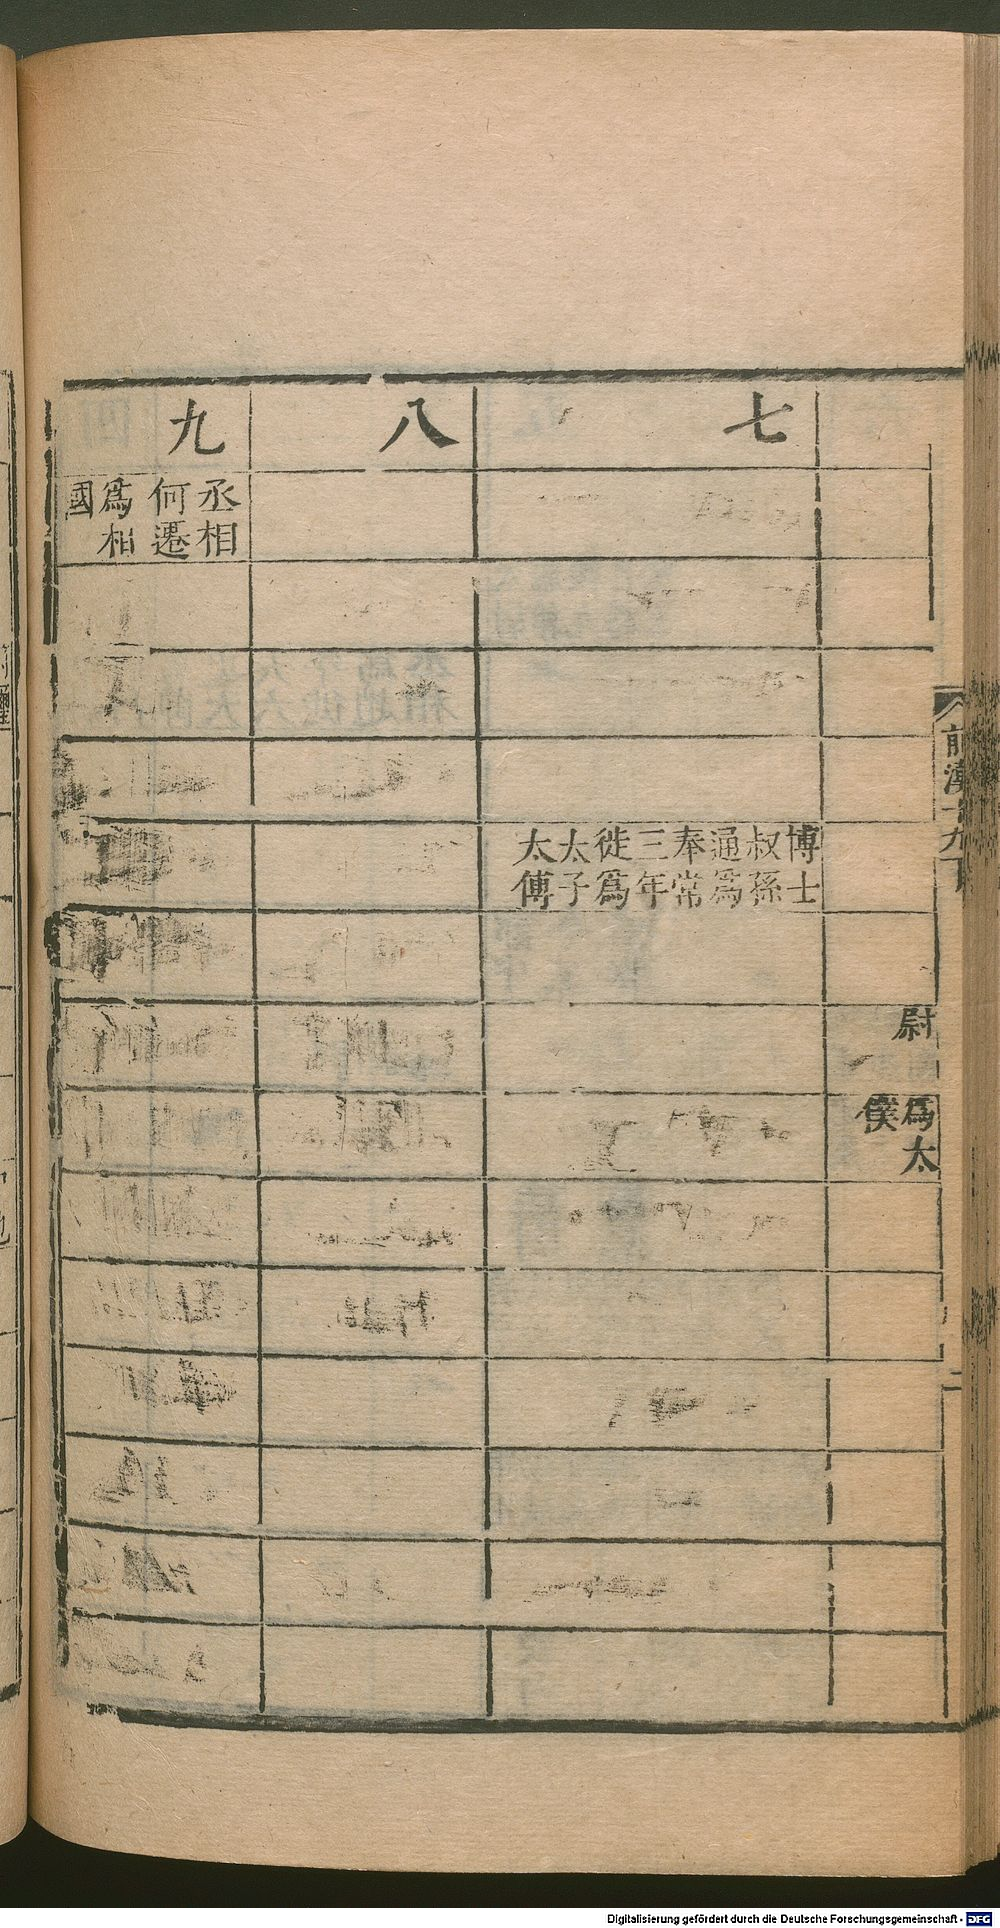 前漢十九下
二
尉
爲太
僕
七
博士
叔孫
通爲
奉常
三年
徙爲
太子
太傅
八
九
丞相
何遷
爲相
國
Digitalisierung gefördert durch die Deutsche Forschungsgemeinschaft - DFG